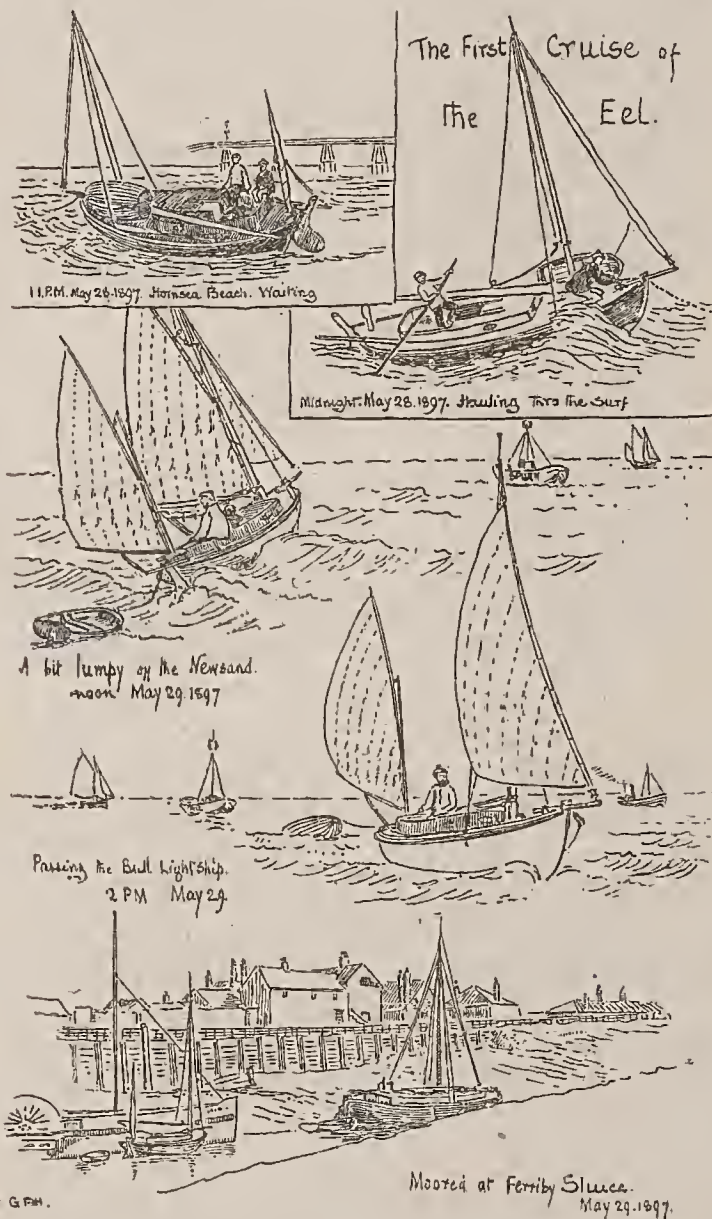 The First Cruise of
the Eel.
11.P.M. May 28.1897. Hornsea Beach. Waiting
Midnight. May 28.1897. Hauling Thro the Surf
SPURN
A bit lumpy off the Newsand.
noon May 29.1897
Passing the Bull Lightship.
2 PM May 29.
Moored at Ferriby Sluice.
May 29.1897.
G F H.